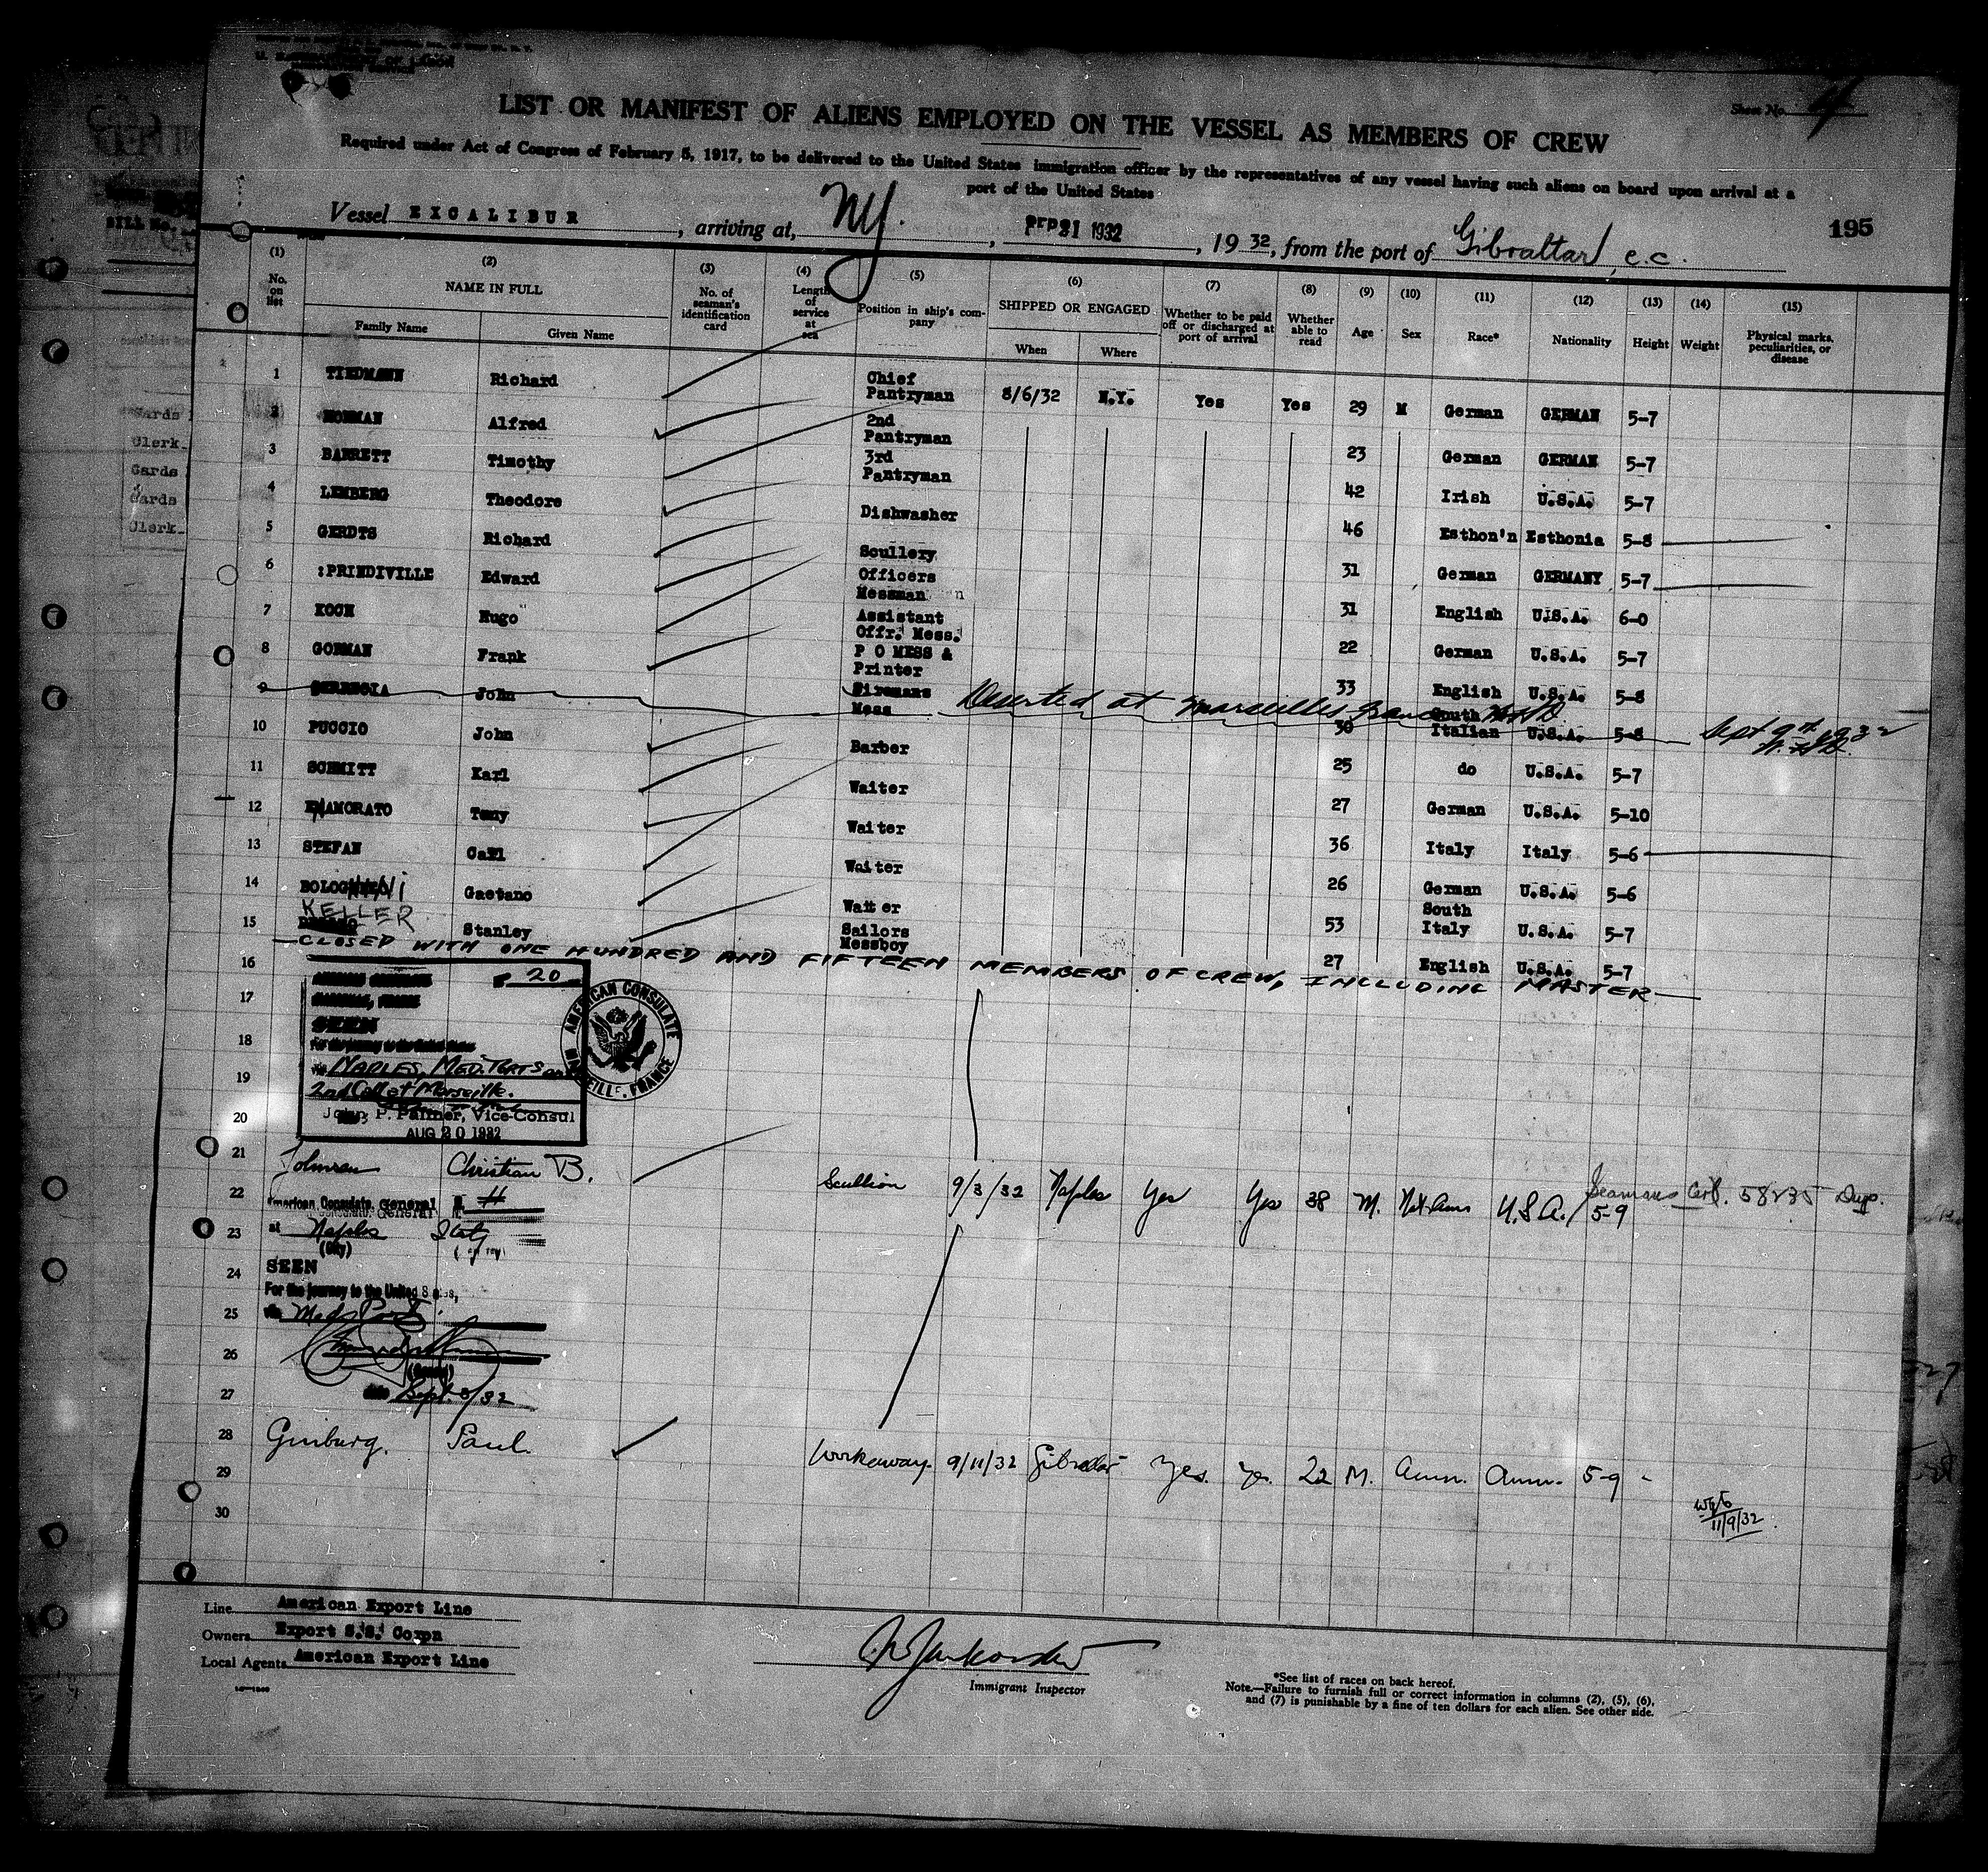 U. S. DEPARTMENT OF LABOR
Sheet No. 4
LIST OR MANIFEST OF ALIENS EMPLOYED ON THE VESSEL AS MEMBERS OF CREW
Required under Act of Congress of February 5, 1917, to be delivered to the United States immigration officer by the representatives of any vessel having such aliens on board upon arrival at a
port of the United States
195
Vessel EXCALIBUR, arriving at, NY., SEP 21 1932, 1932, from the port of Gibraltar, e.c.
(1) (2) (3) (4) (5) (6) (7) (8) (9) (10) (11) (12) (13) (14) (15)
No. on list NAME IN FULL No. of seaman's identification card Length of service at sea Position in ship's company SHIPPED OR ENGAGED Whether to be paid off or discharged at port of arrival Whether able to read Age Sex Race* Nationality Height Weight Physical marks, peculiarities, or disease
Family Name Given Name When Where
1 TIEDMANN Richard Chief Pantryman 8/6/32 N.Y. Yes Yes 29 M German GERMAN 5-7
2 Alfred 2nd Pantryman 23 German GERMAN 5-7
3 BARRETT Timothy 3rd Pantryman 42 Irish U.S.A. 5-7
4 LEMBERG Theodore Dishwasher 46 Esthon'n Esthonia 5-8
5 GERDTS Richard Scullery 31 German GERMANY 5-7
6 :PRINDIVILLE Edward Officers Messman 31 English U.S.A. 6-0
7 KOCH Hugo Assistant Offr. Mess. 22 German U.S.A. 5-7
8 GORMAN Frank P O MESS & Printer 33 English U.S.A. 5-8
9 John Firemans Mess Deserted at Marseilles France 30 South Italian U.S.A. 5-8 Sept 9th 1932
10 PUCCIO John Barber 25 do U.S.A. 5-7
11 SCHMITT Karl Waiter 27 German U.S.A. 5-10
12 ENAMORATO Tony Waiter 36 Italy Italy 5-6
13 STEFAN Carl Waiter 26 German U.S.A. 5-6
14 BOLOGNINI Gaetano Waiter 53 South Italy U.S.A. 5-7
KELLER
15 Stanley Sailors Messboy 27 English U.S.A. 5-7
CLOSED WITH ONE HUNDRED AND FIFTEEN MEMBERS OF CREW, INCLUDING MASTER
16
17
18
19
20
20
SEEN
For the journey to the United States
via NAPLES, MED. PORTS and
2nd Call at Marseille.
John P. Palmer, Vice-Consul
AUG 20 1932
AMERICAN CONSULATE MARSEILLE, FRANCE
21 Johnsen Christian B. Scullion 9/3/32 Naples Yes Yes 38 M. Nat. Am U.S.A. 5-9 Seamans Cert. 58235 Dup.
22 American Consulate General
23 at Naples Italy
(City)
24 SEEN
For the journey to the United States,
25 via Med. Ports
26
27 date Sept. 3/32
28 Ginburg. Paul. Workaway 9/11/32 Gibraltar Yes. Yes. 22 M. Amn. Amn. 5-9
29
30
11/9/32
Line American Export Line
Owners Export S.S. Corpn
Local Agents American Export Line
Immigrant Inspector
*See list of races on back hereof.
Note.—Failure to furnish full or correct information in columns (2), (5), (6),
and (7) is punishable by a fine of ten dollars for each alien. See other side.